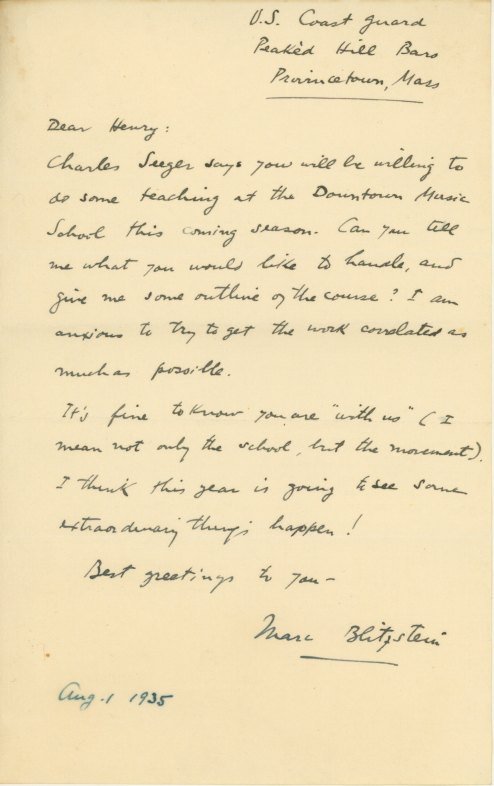 U.S. Coast Guard
Peaked Hill Bars
Provincetown, Mass
Dear Henry:
Charles Seeger says you will be willing to
do some teaching at the Downtown Music
School this coming season. Can you tell
me what you would like to handle, and
give me some outline of the course? I am
anxious to try to get the work correlated as
much as possible.
It's fine to know you are "with us" (I
mean not only the school, but the movement).
I think this year is going to see some
extraordinary things happen!
Best greetings to you—
Marc Blitzstein
Aug. 1 1935